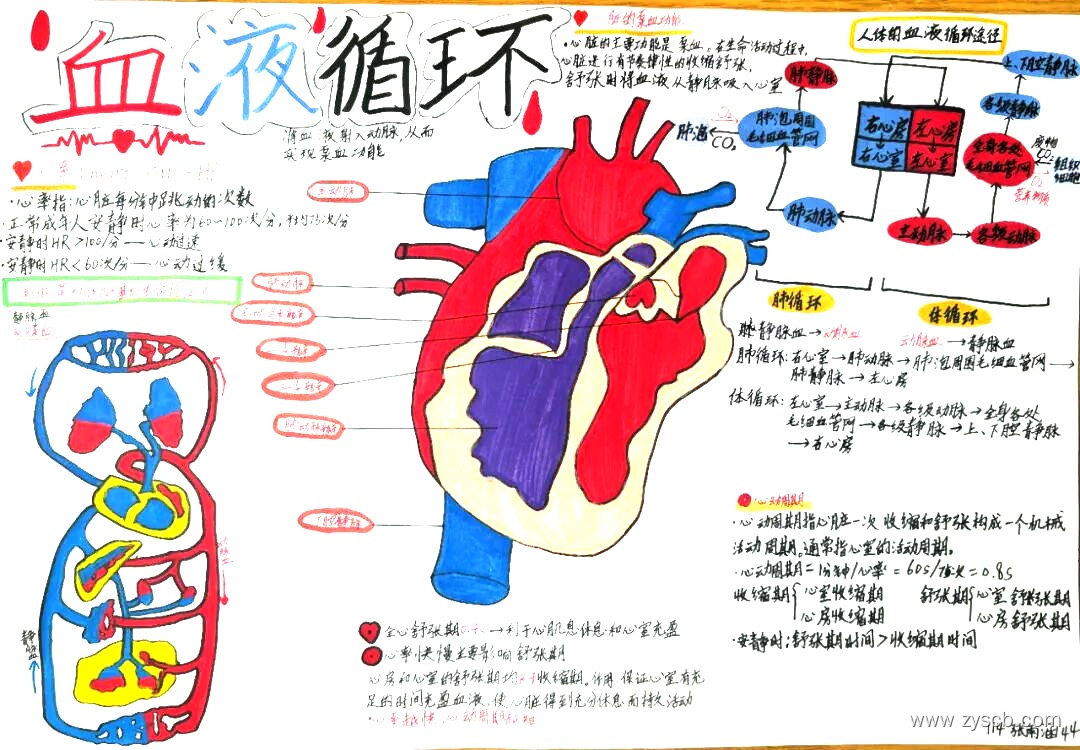 血液循环
心脏的主要功能是泵血。在生命活动过程中,
心脏进行有节奏律性的收缩舒张,
舒张时将血液从静脉吸入心室
将血液射入动脉,从而
实现泵血功能
·心率指:心脏每分钟中跳动的次数
·正常成年人安静时心率为60~100次/分,平均75次/分
·安静时HR>100/分——心动过速
·安静时HR<60次/分——心动过缓
静脉血
主动脉
肺动脉
人体的血液循环途径
上、下腔静脉
肺静脉
各级静脉
肺泡周围
毛细血管网
肺泡
O₂
CO₂
右心房
左心房
右心室
左心室
全身各处
毛细血管网
废物
CO₂
组织
细胞
O₂
营养物质
肺动脉
主动脉
各级动脉
肺循环
体循环
静脉血→动脉血
动脉血→静脉血
肺循环:右心室→肺动脉→肺泡周围毛细血管网→
肺静脉→左心房
体循环:左心室→主动脉→各级动脉→全身各处
毛细血管网→各级静脉→上、下腔静脉
→右心房
心动周期
·心动周期指心脏一次收缩和舒张构成一个机械
活动周期。通常指心室的活动周期。
·心动周期=1分钟/心率=60s/75次=0.8s
收缩期{心室收缩期
心房收缩期
舒张期{心室舒张期
心房舒张期
·安静时,舒张期时间>收缩期时间
动脉血
静脉血
全心舒张期0.4s→利于心肌息休息和心室充盈
心率快慢主要影响舒张期
心房和心室的舒张期均长于收缩期。作用 保证心室有充
足的时间充盈血液,使心脏得到充分休息而持久活动
www.zyscb.com